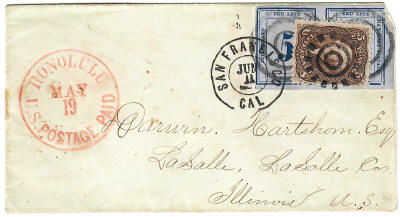 HONOLULU
MAY
19
U.S. POSTAGE PAID
SAN FRANCISCO
JUN
11
CAL
5
Darwin. Hartshorn. Esq
LaSalle. LaSalle Co.
Illinois U.S.